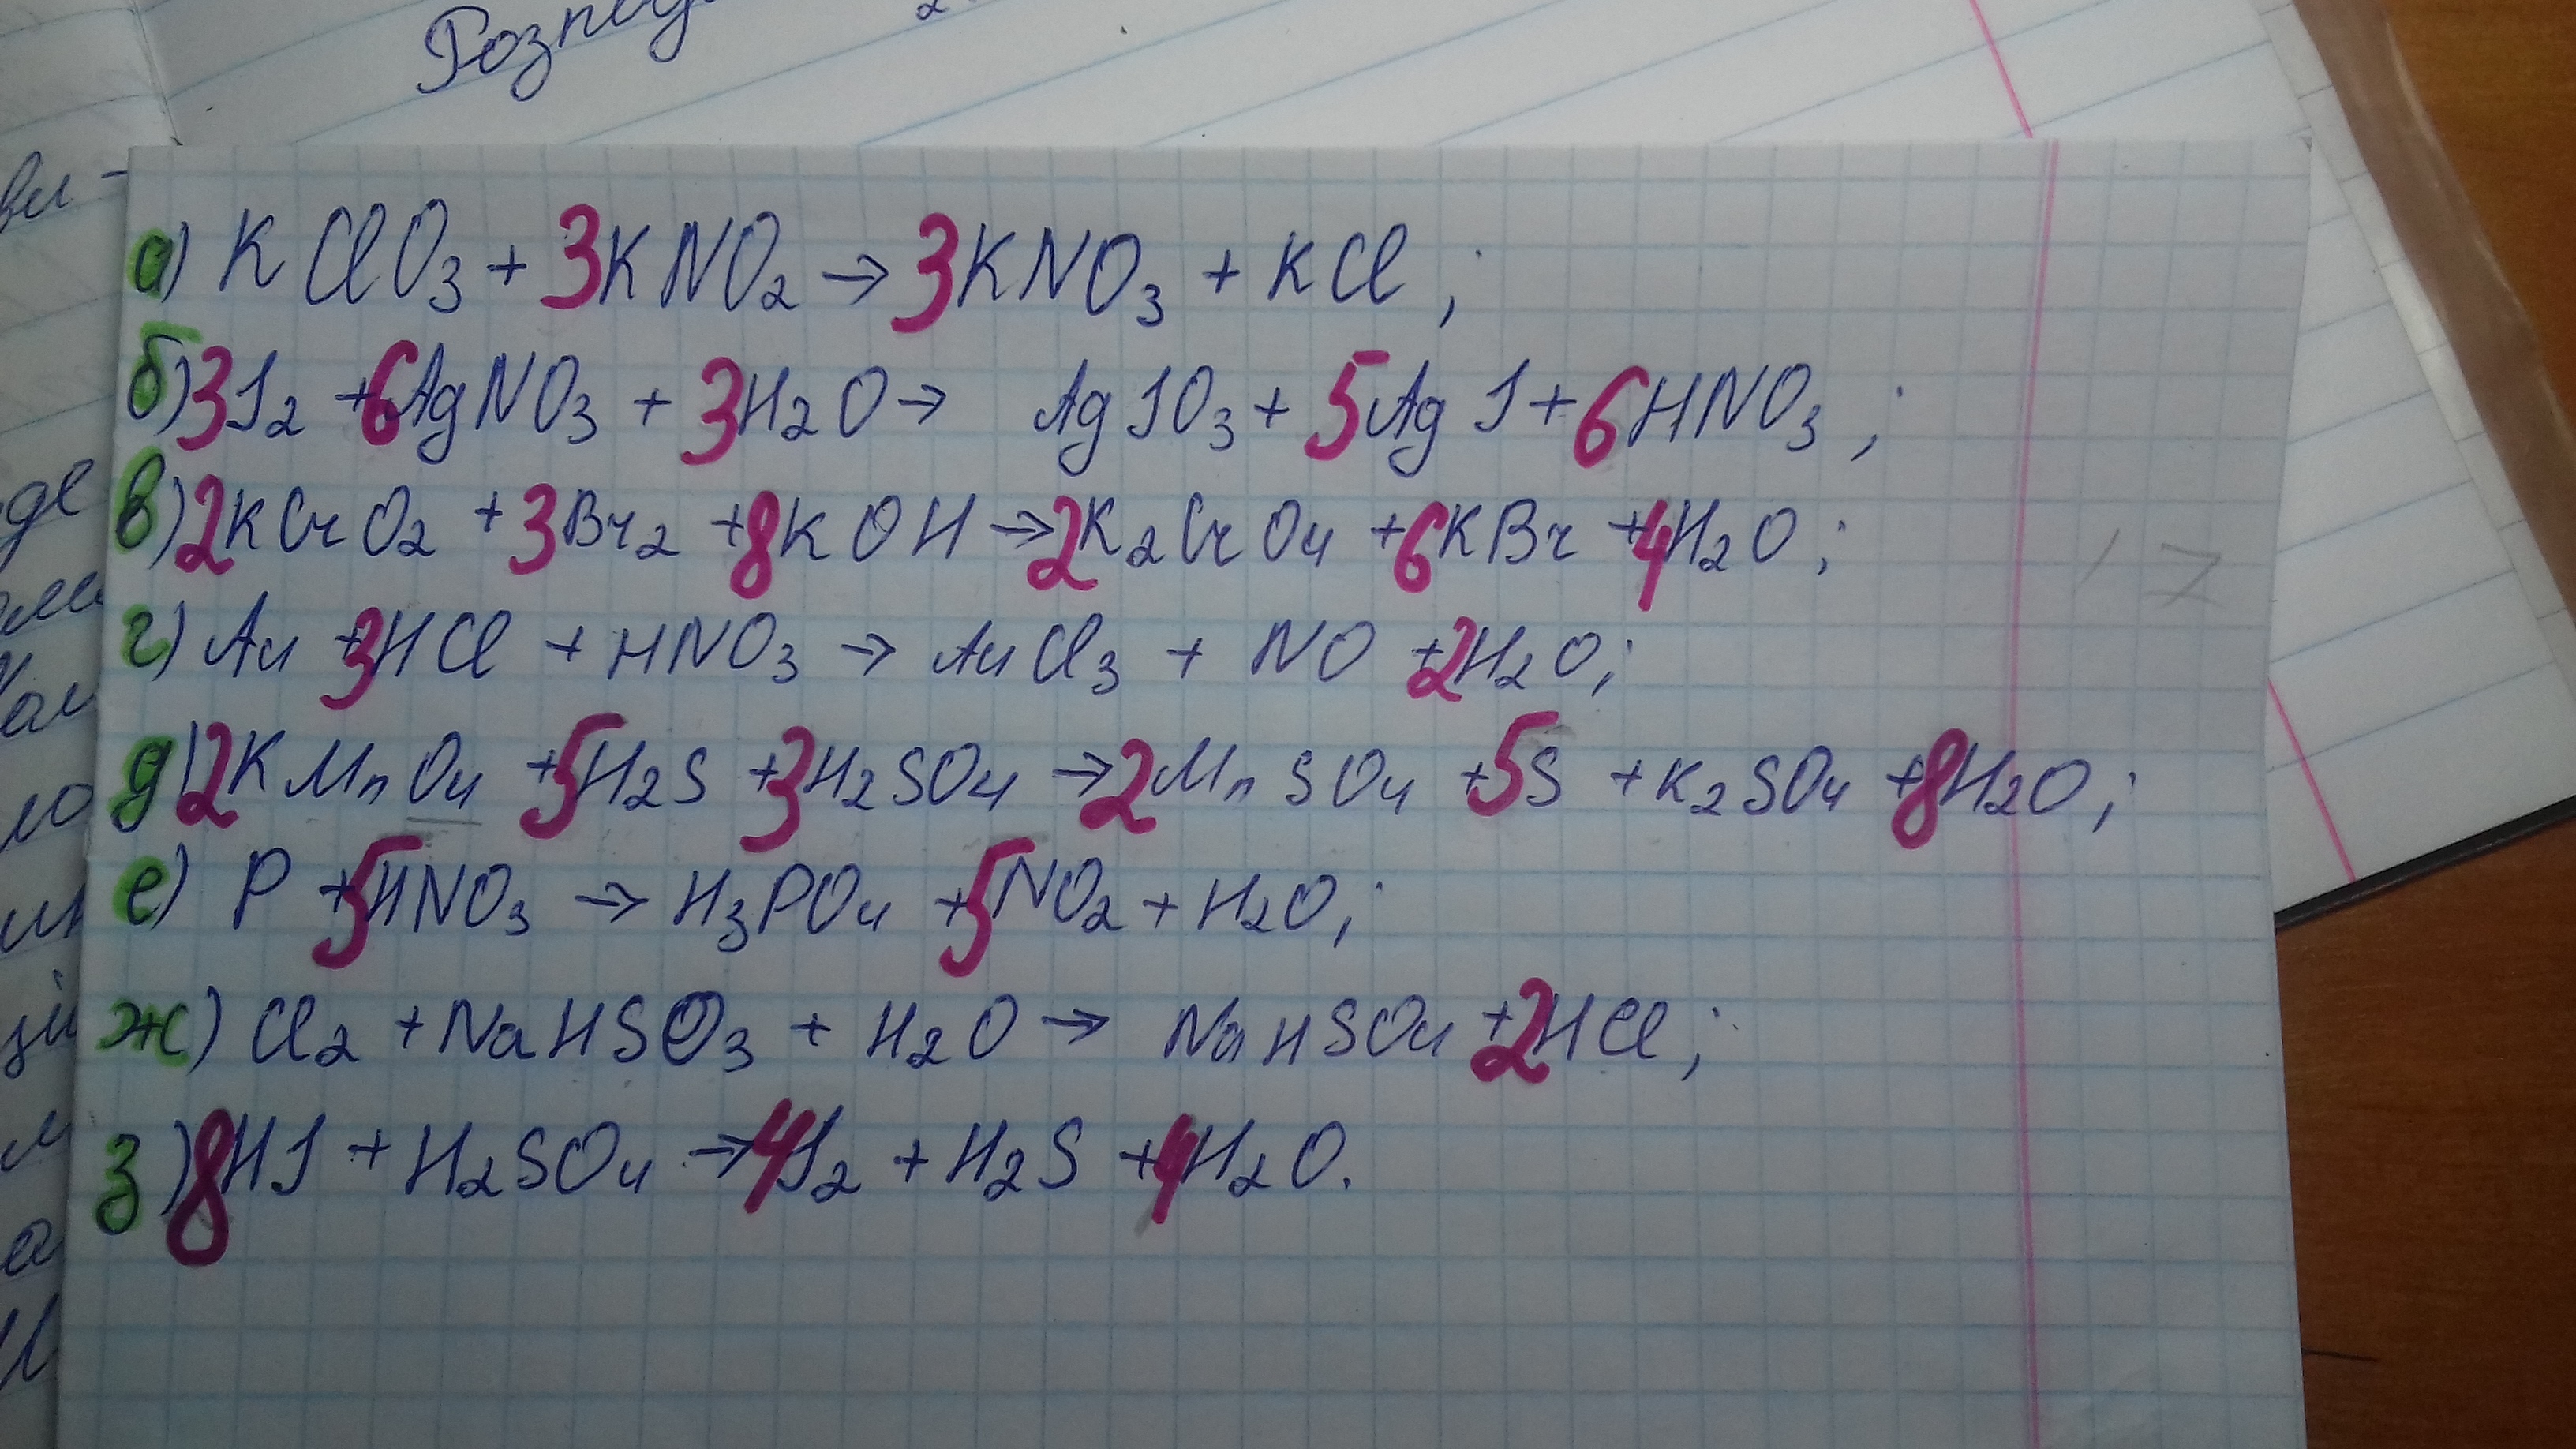 а) KClO₃ + 3KNO₂ → 3KNO₃ + KCl;
б) 3J₂ + 6AgNO₃ + 3H₂O → AgJO₃ + 5AgJ + 6HNO₃;
в) 2KCrO₂ + 3Br₂ + 8KOH → 2K₂CrO₄ + 6KBr + 4H₂O;
г) Au + 3HCl + HNO₃ → AuCl₃ + NO + 2H₂O;
д) 2KMnO₄ + 5H₂S + 3H₂SO₄ → 2MnSO₄ + 5S + K₂SO₄ + 8H₂O;
е) P + 5HNO₃ → H₃PO₄ + 5NO₂ + H₂O;
ж) Cl₂ + NaHSO₃ + H₂O → NaHSO₄ + 2HCl;
з) 8HJ + H₂SO₄ → 4J₂ + H₂S + 4H₂O.